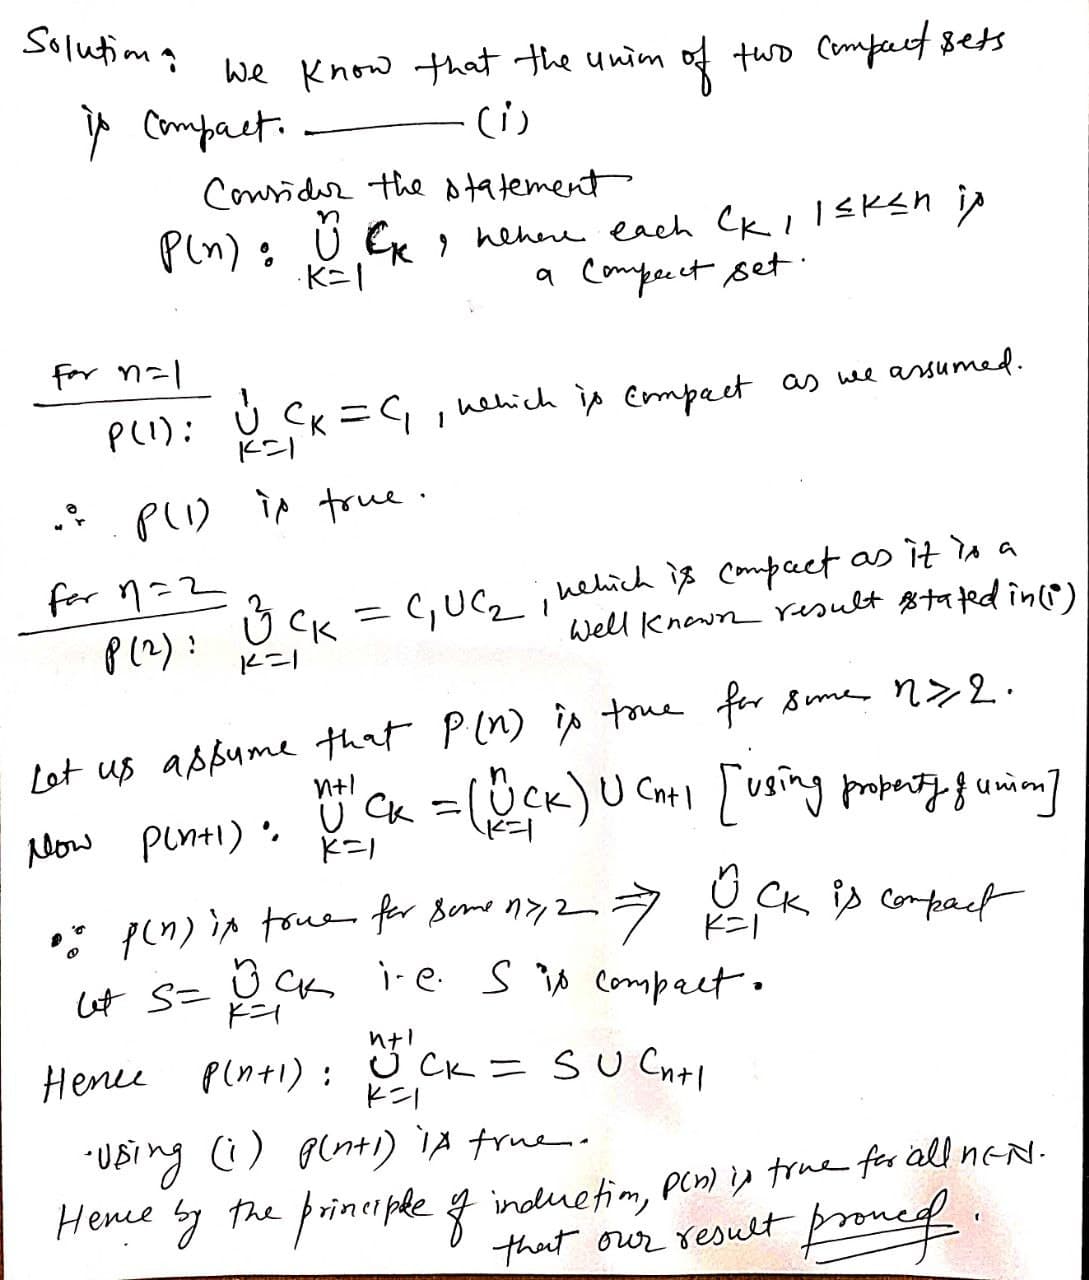 Solution: We know that the union of two compact sets
is compact. ——— (i)
Consider the statement
P(n): ⋃_{K=1}^{n} C_K, where each C_K, 1≤K≤n is
a compact set.
For n=1
P(1): ⋃_{K=1}^{1} C_K = C_1, which is compact as we assumed.
∴ P(1) is true.
for n=2
P(2): ⋃_{K=1}^{2} C_K = C_1 ∪ C_2, which is compact as it is a
well known result stated in (i)
Let us assume that P(n) is true for some n≥2.
Now P(n+1): ⋃_{K=1}^{n+1} C_K = (⋃_{K=1}^{n} C_K) ∪ C_{n+1} [using property of union]
∵ P(n) is true for some n≥2 ⇒ ⋃_{K=1}^{n} C_K is compact
Let S = ⋃_{K=1}^{n} C_K i.e. S is compact.
Hence P(n+1): ⋃_{K=1}^{n+1} C_K = S ∪ C_{n+1}
Using (i) P(n+1) is true.
Hence by the principle of induction, P(n) is true for all n∈N.
that our result proved.